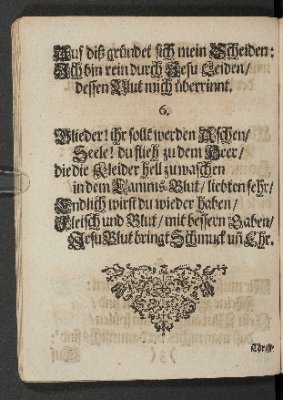 Auf diß gründet sich mein Scheiden:
Ich bin rein durch Jesu Leiden/
dessen Blut mich überrinnt.
6.
Glieder! ihr sollt werden Aschen/
Seele! du flieh zu dem Heer/
die die Kleider hell zuwaschen
in dem Lamms-Blut/ liebten sehr/
Endlich wirst du wieder haben/
Fleisch und Blut/ mit bessern Gaben/
Jesu Blut bringt Schmuck uñ Ehr.
Christ-